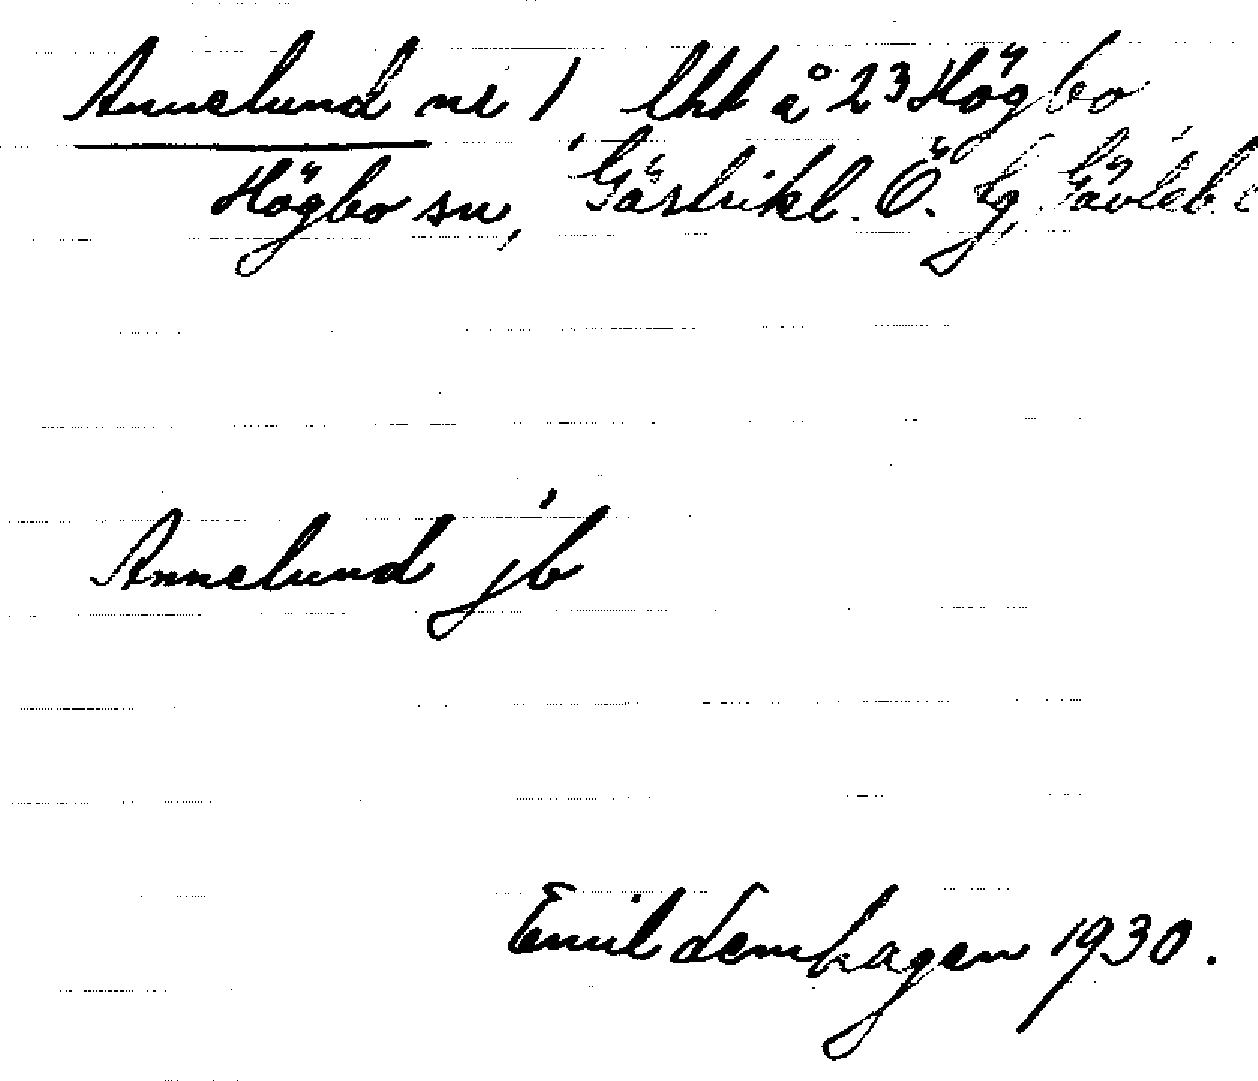 Annelund nr 1 lht å 23 Högbo
Högbo sn, Gästrikl. Ö. tg, Gävleb.
Annelund jb
Emil Lemhagen 1930.